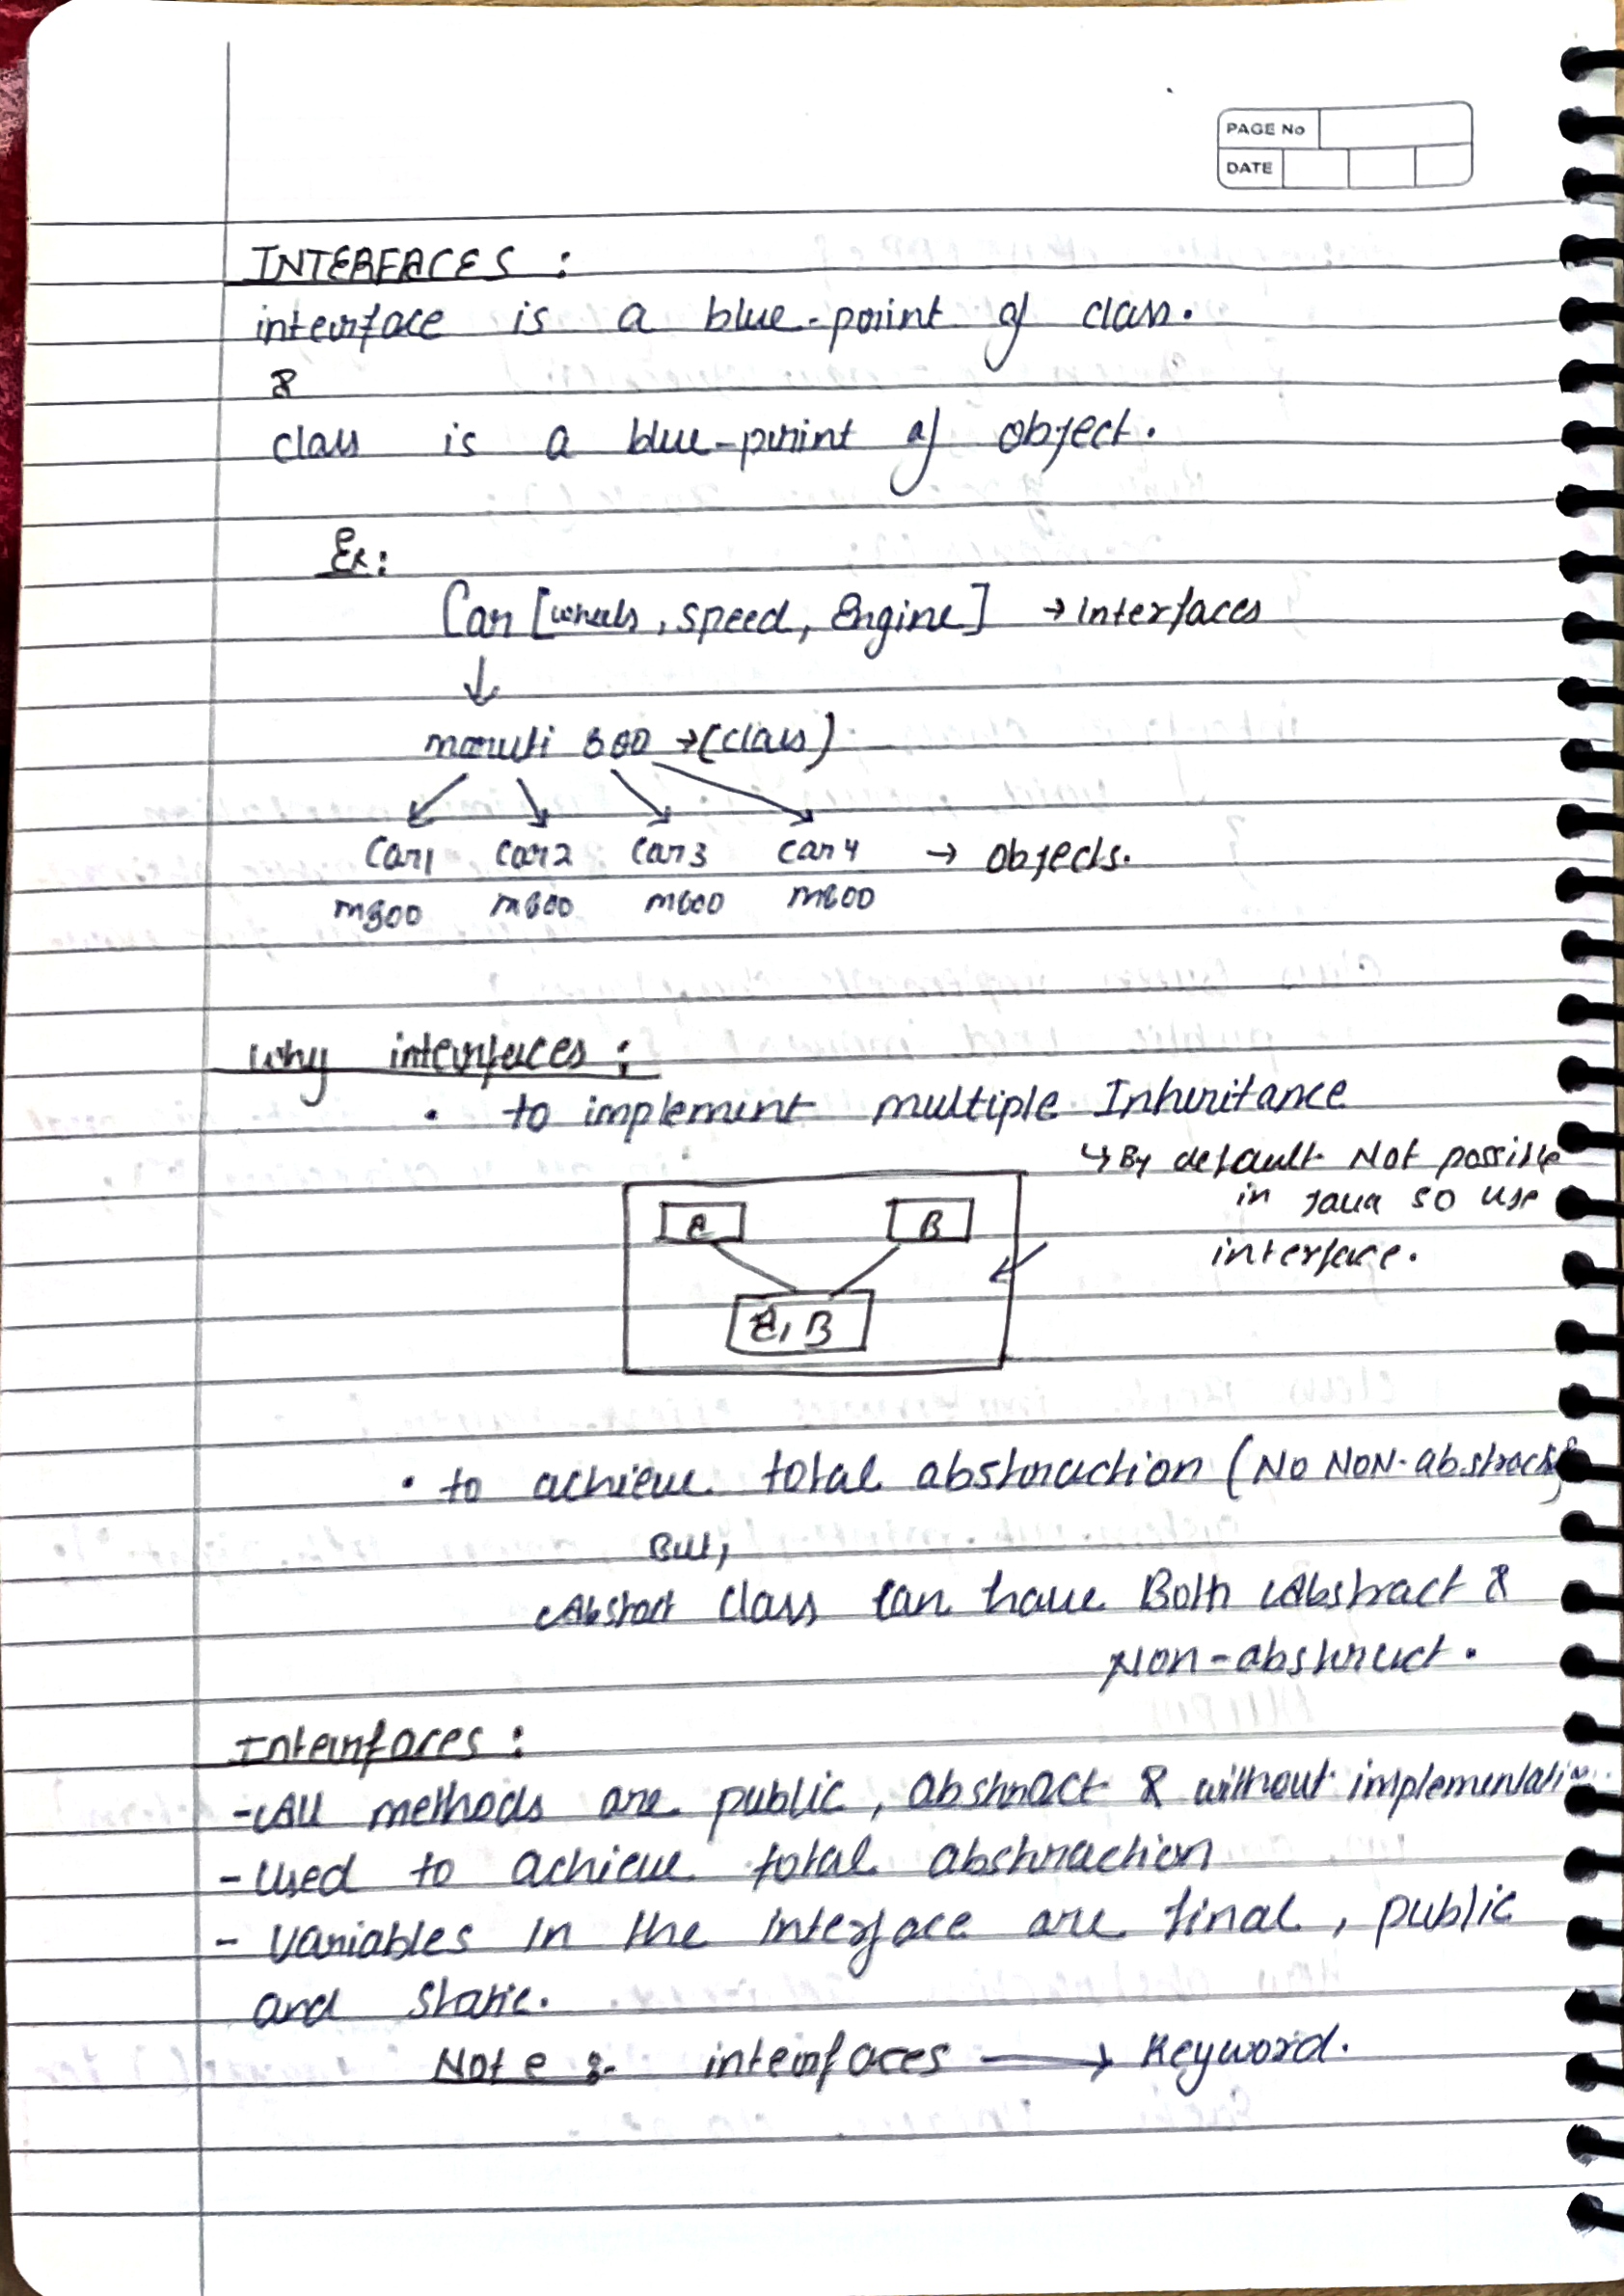 PAGE No
DATE
INTERFACES :
interface is a blue-print of class.
&
class is a blue-print of object.
Ex:
Car [wheels, speed, Engine] → Interfaces
↓
maruti 800 → (class)
Car1 Car2 Car3 Car4 → Objects.
m800 m800 m800 m800
Why interfaces :
• to implement multiple Inheritance
↳ By default Not possible
in Java so use
interface.
B
B
• to achieve total abstraction (No NON-abstract)
But,
Abstract class can have Both Abstract &
Non-abstract.
Interfaces :
- All methods are public, abstract & without implementation
- Used to achieve total abstraction
- Variables in the interface are final, public
and static.
Note :- interfaces → Keyword.